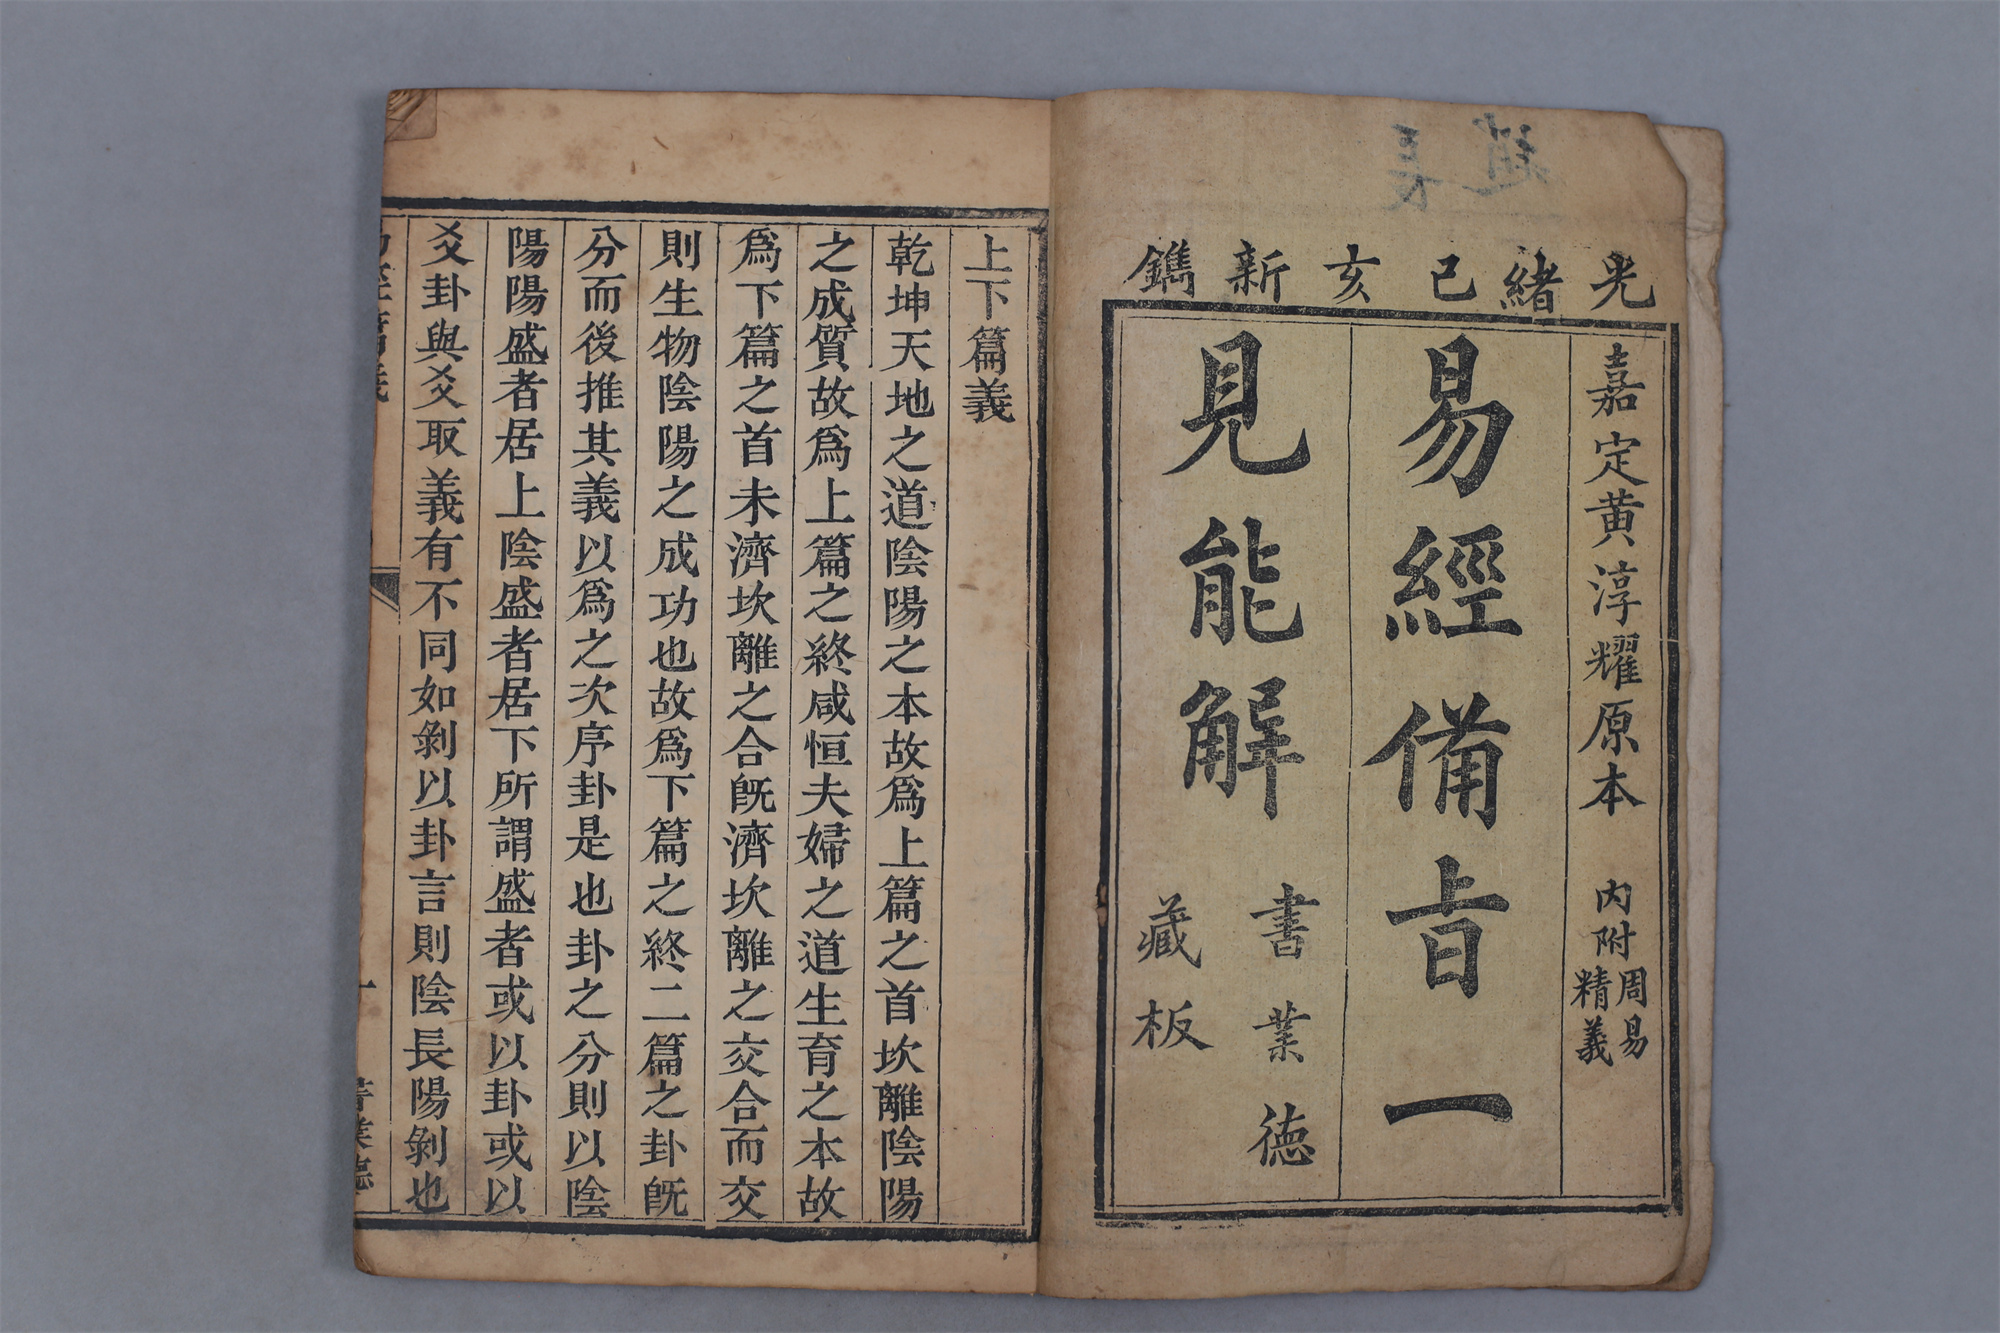 光緒己亥新鐫
嘉定黄淳耀原本 内附周易精義
易經備旨一
見能解
書業德
藏板
上下篇義
乾坤天地之道陰陽之本故爲上篇之首坎離陰陽
之成質故爲上篇之終咸恒夫婦之道生育之本故
爲下篇之首未濟坎離之合旣濟坎離之交合而交
則生物陰陽之成功也故爲下篇之終二篇之卦旣
分而後推其義以爲之次序卦是也卦之分則以陰
陽陽盛者居上陰盛者居下所謂盛者或以卦或以
爻卦與爻取義有不同如剝以卦言則陰長陽剝也